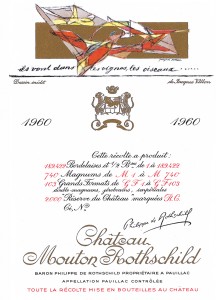 ils vont dans les vignes, les oiseaux ......
Dessin inédit de Jacques Villon
1960 1960
Cette récolte a produit :
Bordelaises et ½ Btes de 1 à
Magnums de M 1 à M
Grands Formats de G F 1 à G F
double magnums, jéroboams, impériales
2000 Réserve du Château marquées R.C.
Ci, No
Philippe de Rothschild
Château
Mouton Rothschild
BARON PHILIPPE DE ROTHSCHILD PROPRIÉTAIRE A PAUILLAC
APPELLATION PAUILLAC CONTRÔLÉE
TOUTE LA RÉCOLTE MISE EN BOUTEILLES AU CHATEAU